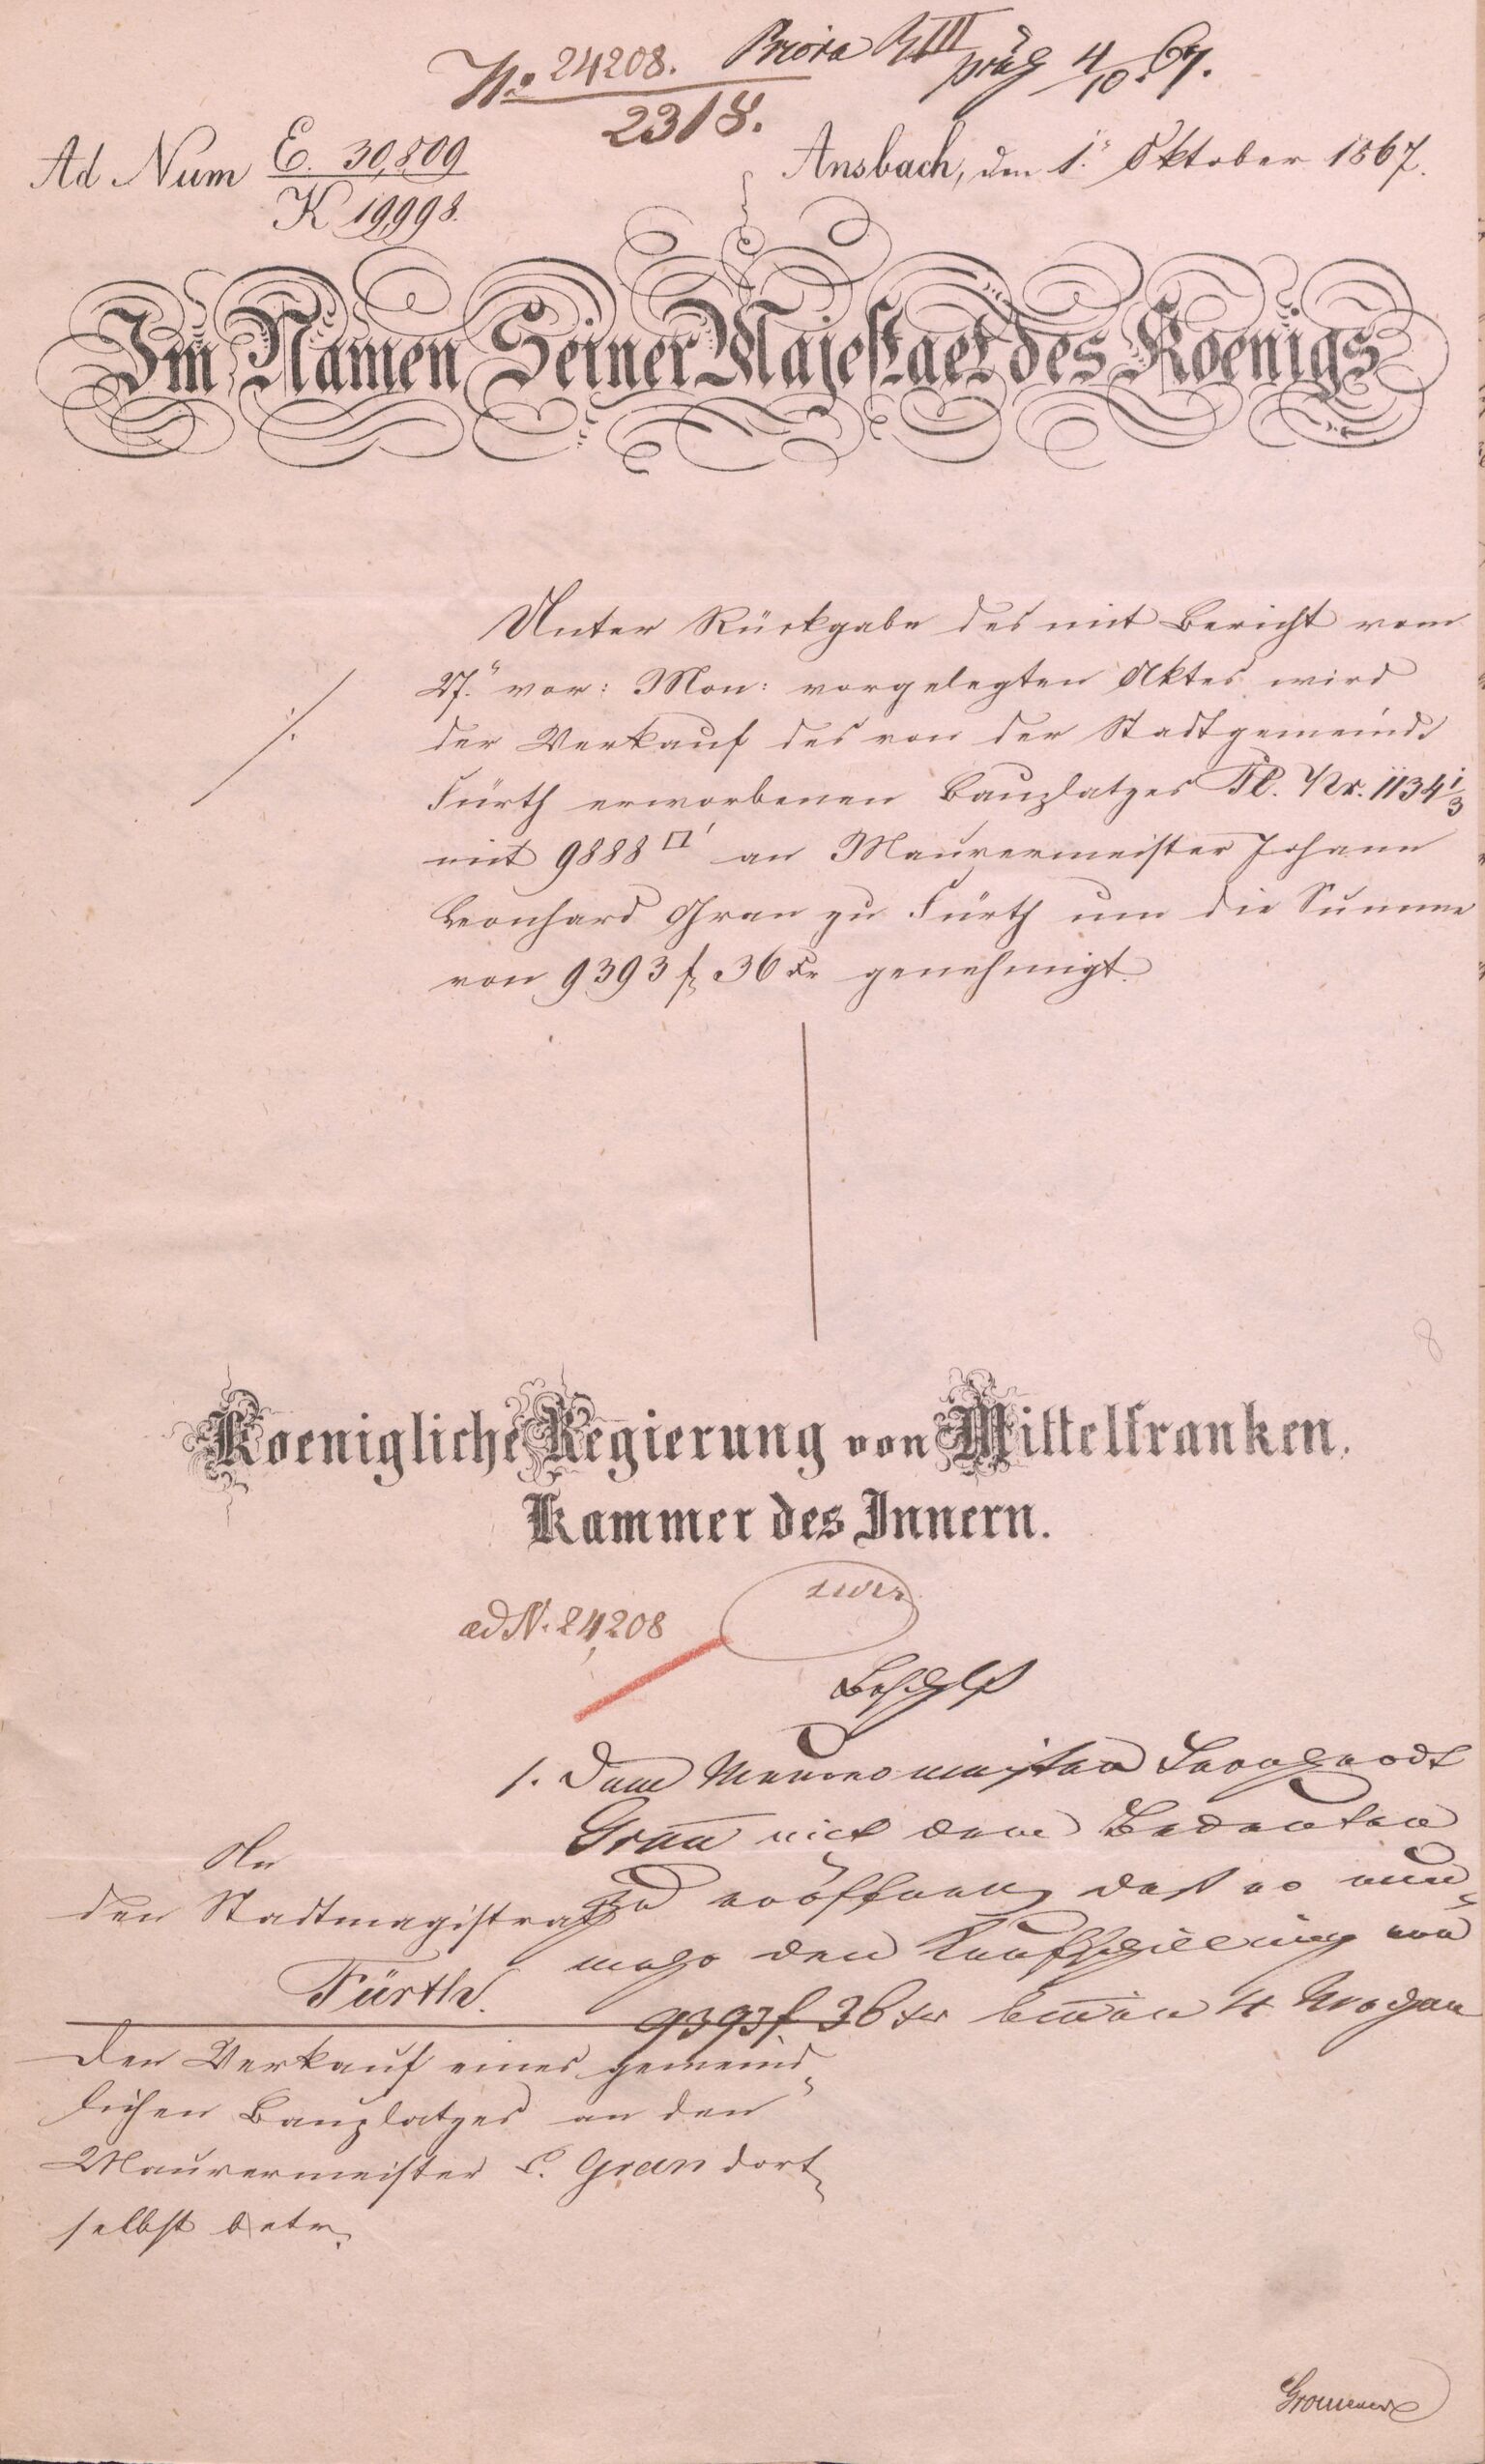 No. 24208. Priora R III präs 4/10. 67.
2318.
Ad Num E. 30,809
K 19,998.
Ansbach, den 1.ten Oktober 1867.
Im Namen Seiner Majestaet des Koenigs
Unter Rückgabe des mit Bericht vom
27.ten vor: Mon: vorgelegten Aktes wird
der Verkauf des von der Stadtgemeinde
Fürth erworbenen Bauplatzes Pl. Nr. 1134 1/3
mit 9888 □' an Maurermeister Johann
Leonhard Gran zu Fürth um die Summe
von 9393 f 36 xr genehmigt.
Koenigliche Regierung von Mittelfranken,
Kammer des Innern.
ad N. 24,208
Beschluß
1. Dem Maurermeister Leonhardt
Grau mit dem Bedeuten
zu eröffnen, daß er nun-
mehr den Kaufschilling von
9393 f. 36 xr binnen 4 Wochen
An
den Stadtmagistrat
Fürth.
Den Verkauf eines gemeind-
lichen Bauplatzes an den
Maurermeister L. Gran dort-
selbst betr.